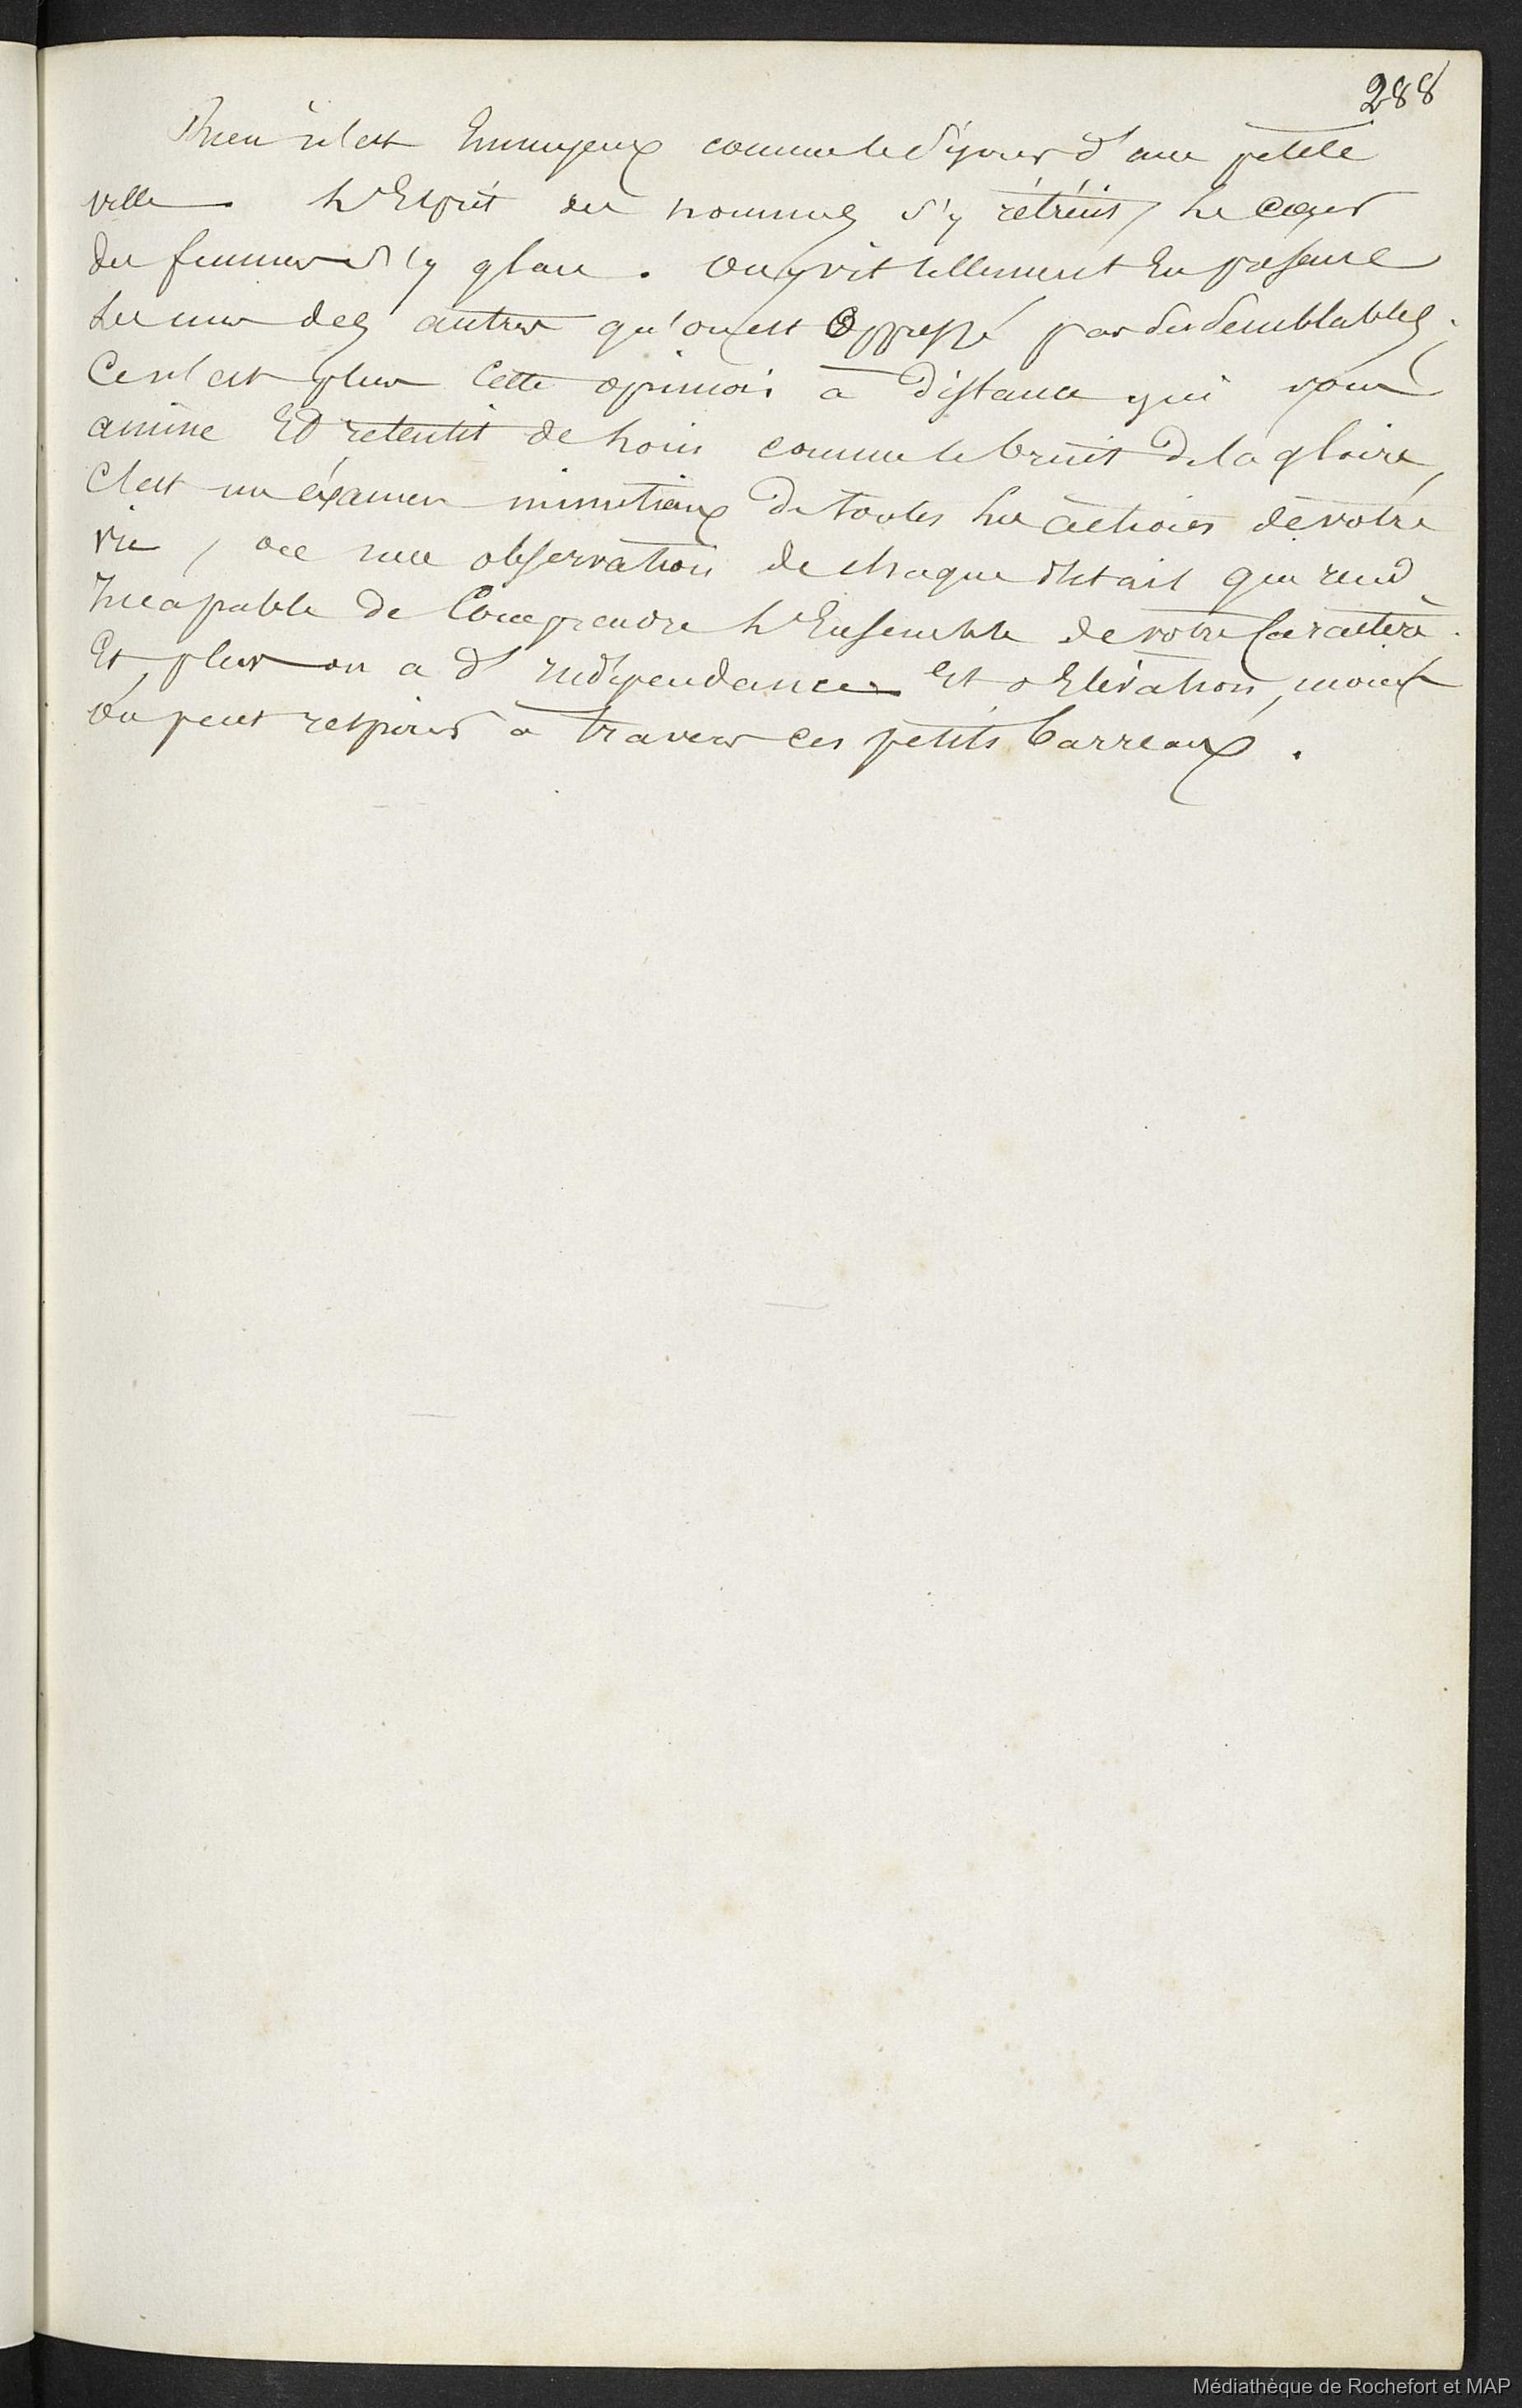 288
Rien n'est Ennuyeux comme le Séjour d'une petite
ville. L'Esprit des hommes s'y rétrécit, Le Coeur
des femmes s'y glace. On y vit tellement En présence
Les uns des autres qu'on est Oppressé par ses Semblables.
Ce n'est plus Cette opinion à Distance qui vous
anime Et retentit de Loin comme le bruit de la gloire,
C'est un éxamen minutieux De toutes Les actions de votre
vie, une observation de chaque détail qui rend
Incapable de Comprendre L'Ensemble de votre Caractère.
Et plus on a d'indépendance Et d'Elévation, moins
On peut respirer à travers ces petits barreaux.
Médiathèque de Rochefort et MAP